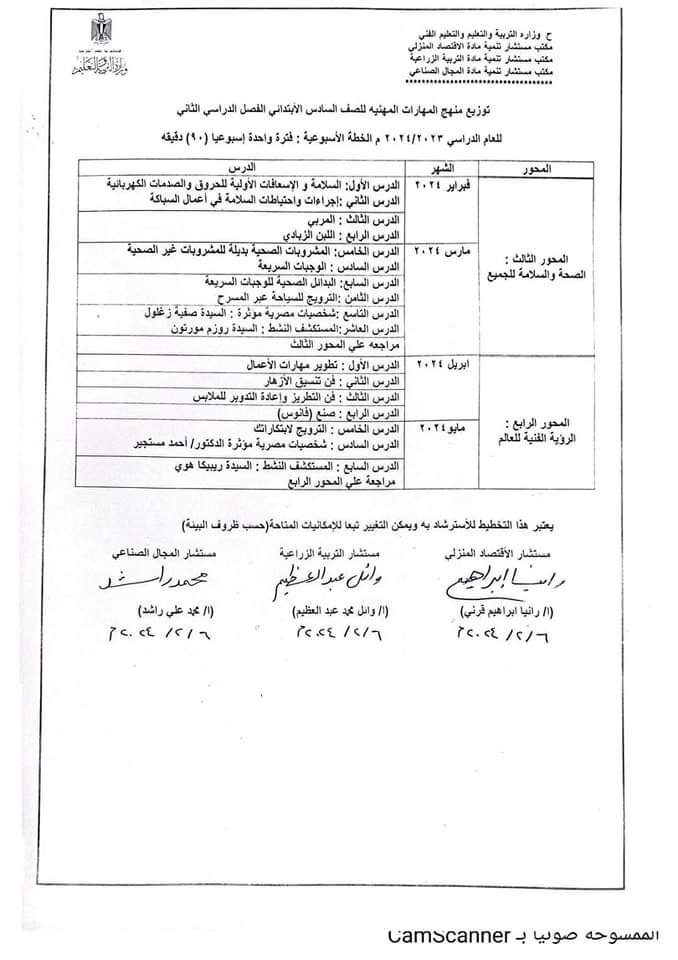 ح وزاره التربية والتعليم والتعليم الفني
مكتب مستشار تنمية مادة الأقتصاد المنزلي
مكتب مستشار تنمية مادة التربية الزراعية
مكتب مستشار تنمية مادة المجال الصناعي
وزارة التربية والتعليم
توزيع منهج المهارات المهنيه للصف السادس الأبتدائي الفصل الدراسي الثاني
للعام الدراسي ٢٠٢٤/٢٠٢٣ م الخطة الأسبوعية : فترة واحدة إسبوعيا (٩٠) دقيقه
المحور الشهر الدرس
المحور الثالث :
الصحة والسلامة للجميع
فبراير ٢٠٢٤
الدرس الأول: السلامة و الإسعافات الأولية للحروق والصدمات الكهربائية
الدرس الثاني :إجراءات واحتياطات السلامة في أعمال السباكة
الدرس الثالث : المربي
الدرس الرابع : اللبن الزبادي
مارس ٢٠٢٤
الدرس الخامس: المشروبات الصحية بديلة للمشروبات غير الصحية
الدرس السادس : الوجبات السريعة
الدرس السابع : البدائل الصحية للوجبات السريعة
الدرس الثامن :الترويج للسياحة عبر المسرح
الدرس التاسع :شخصيات مصرية مؤثرة : السيدة صفية زغلول
الدرس العاشر:المستكشف النشط : السيدة روزم مورتون
مراجعه علي المحور الثالث
المحور الرابع :
الرؤية الفنية للعالم
ابريل ٢٠٢٤
الدرس الأول : تطوير مهارات الأعمال
الدرس الثاني : فن تنسيق الأزهار
الدرس الثالث : فن التطريز وإعادة التدوير للملابس
الدرس الرابع : صنع (فانوس)
مايو ٢٠٢٤
الدرس الخامس : الترويج لابتكاراتك
الدرس السادس : شخصيات مصرية مؤثرة الدكتور/ أحمد مستجير
الدرس السابع : المستكشف النشط : السيدة ريبيكا هوي
مراجعة علي المحور الرابع
يعتبر هذا التخطيط للأسترشاد به ويمكن التغيير تبعا للإمكانيات المتاحة(حسب ظروف البيئة)
مستشار الأقتصاد المنزلي مستشار التربية الزراعية مستشار المجال الصناعي
رانيا ابراهيم وائل عبد العظيم محمد راشد
(ا/ رانيا ابراهيم قرني) (ا/ وائل محمد عبد العظيم) (ا/ محمد علي راشد)
٢٠٢٤/٢/٦م ٢٠٢٤/٢/٦م ٢٠٢٤/٢/٦م
الممسوحة ضوئيا بـ CamScanner